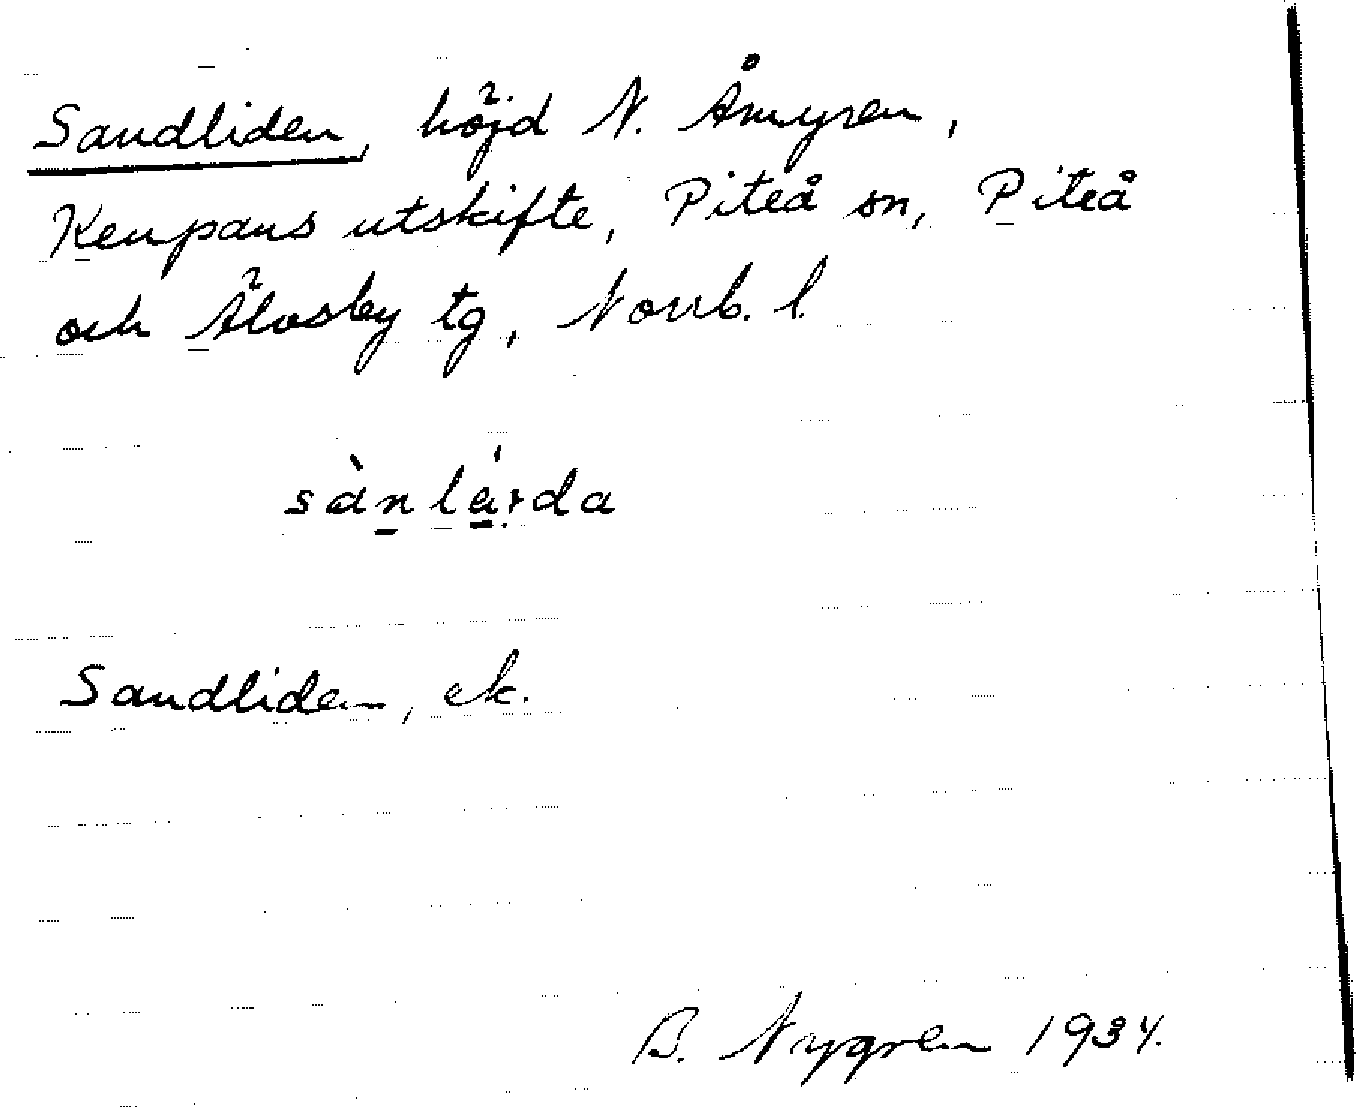 Sandliden, höjd N. Åmyren,
Kenpans utskifte, Piteå sn, Piteå
och Älvsby tg, Norrb. l.
Sandliden, ek.
B. Nygren 1934.